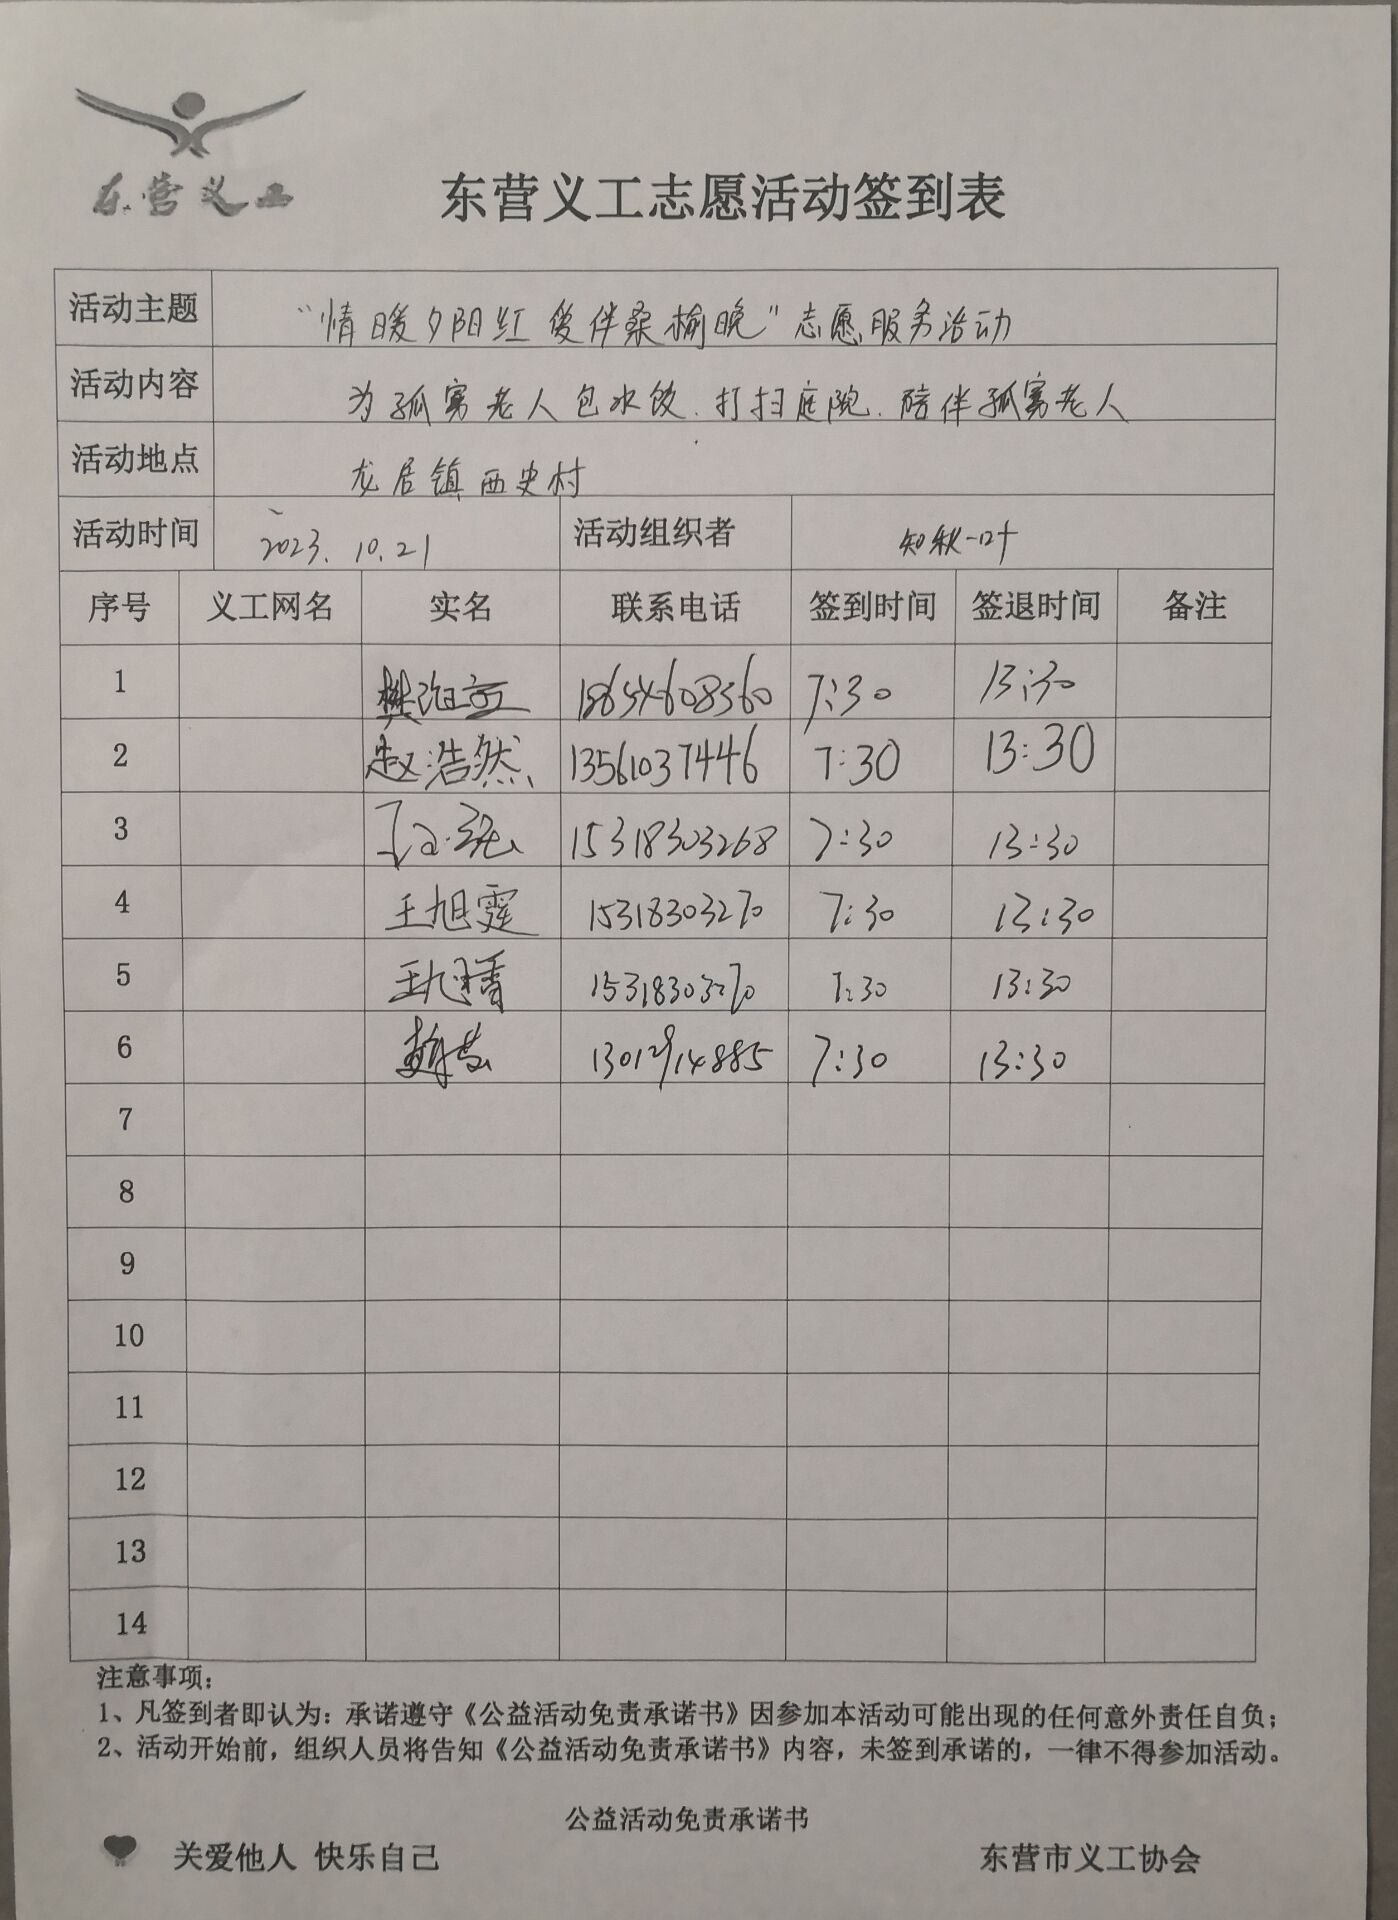 东营义工
东营义工志愿活动签到表
活动主题 “情暖夕阳红 爱伴桑榆晚”志愿服务活动
活动内容 为孤寡老人包水饺、打扫庭院、陪伴孤寡老人
活动地点 龙居镇西史村
活动时间 2023.10.21 活动组织者 知秋一叶
序号 义工网名 实名 联系电话 签到时间 签退时间 备注
1 18654608560 7:30 13:30
2 赵浩然 13561037446 7:30 13:30
3 15318303268 7:30 13:30
4 王旭霆 15318303270 7:30 13:30
5 15318303270 7:30 13:30
6 13012914885 7:30 13:30
7
8
9
10
11
12
13
14
注意事项：
1、凡签到者即认为：承诺遵守《公益活动免责承诺书》因参加本活动可能出现的任何意外责任自负；
2、活动开始前，组织人员将告知《公益活动免责承诺书》内容，未签到承诺的，一律不得参加活动。
公益活动免责承诺书
关爱他人 快乐自己 东营市义工协会